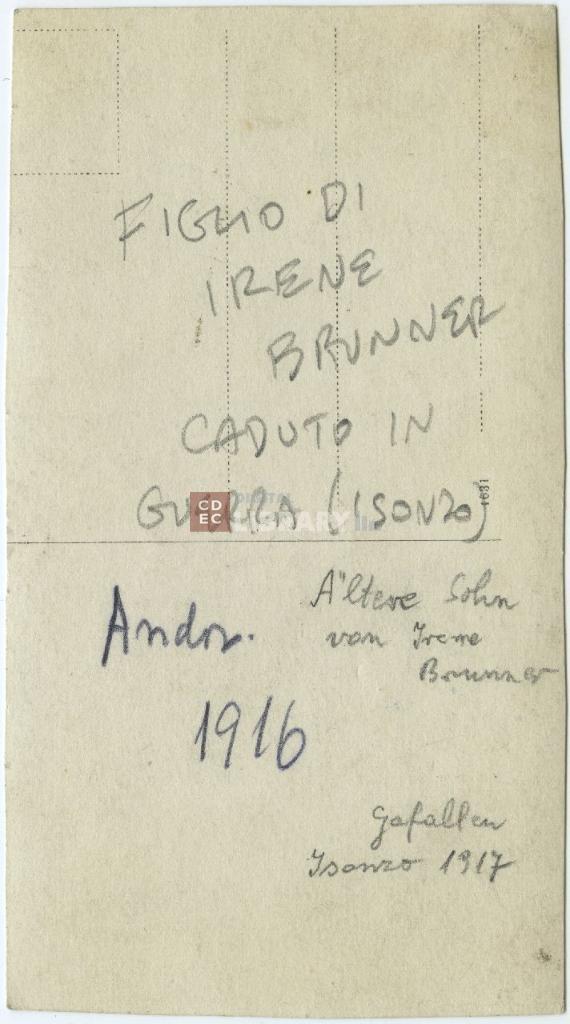 FIGLIO DI
IRENE
BRUNNER
CADUTO IN
GUERRA (ISONZO)
1631
CDEC
DIGITAL
LIBRARY
Andor.
1916
Ältere Sohn
von Irene
Brunner
Gefallen
Isonzo 1917